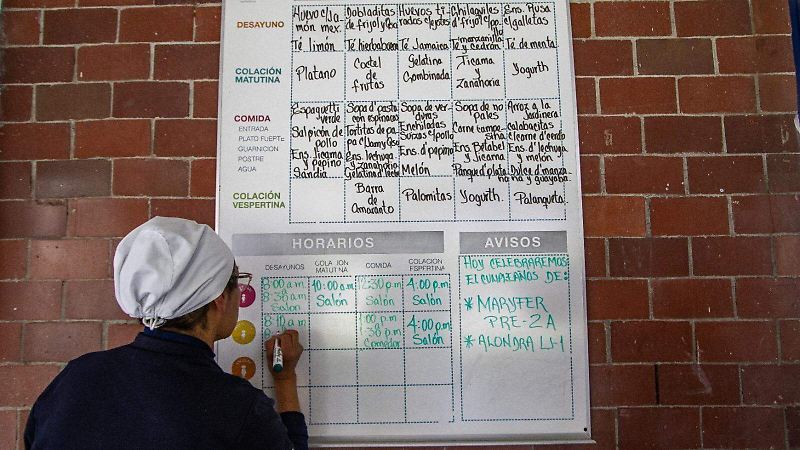 DESAYUNO
Huevo c/Ja
món mex.
Dobladitas
de frijol y Queso
Huevos ti-
rados c/ejotes
Chilaquiles
d' frijol c/pollo
Ens. Rusa
c/galletas
Té limón
Té hierbabuena
Té Jamaica
Té manzanilla
y cedrón
Té de menta
COLACIÓN
MATUTINA
Platano
Coctel
de
frutas
Gelatina
Combinada
Jicama
y
zanahoria
Yogurth
COMIDA
ENTRADA
PLATO FUERTE
GUARNICIÓN
POSTRE
AGUA
Espaguetti
verde
Salpicón de
pollo
Ens. Jicama
y pepino
Sandía
Sopa d' pasta
con espinaca
Tortitas de pa-
pa c/Jam y Queso
Ens. lechuga
y zanahoria
Gelatina d' leche
Sopa de ver-
duras
Enchiladas
Suizas c/pollo
Ens. d' pepino
Melón
Sopa de no
pales
Carne tampi-
Ens. Betabel
y Jicama
Panque d' plata
Arroz a la
Jardinera
calabacitas
c/carne d' cerdo
Ens. d' lechuga
y melón
Dulce d' manza
na y guayaba.
COLACIÓN
VESPERTINA
Barra
de
Amaranto
Palomitas
Yogurth
Palangueta
HORARIOS
DESAYUNOS
COLACIÓN
MATUTINA
COMIDA
COLACIÓN
ESPERTINA
8:00 a.m
8:30 a.m
Salón
10:00 a.m
Salón
12:30 p.m
Salón
4:00 p.m
Salón
8:10 a.m
1:00 p.m
1:30 p.m
Comedor
4:00 p.m
Salón
AVISOS
HOY CELEBRAREMOS
EL CUMPLEAÑOS DE:
* MARYFER
PRE-2A
* ALONDRA L1-1